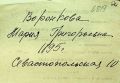 Воронкова
Мария Григорьевна
1195.
Севастопольская 10